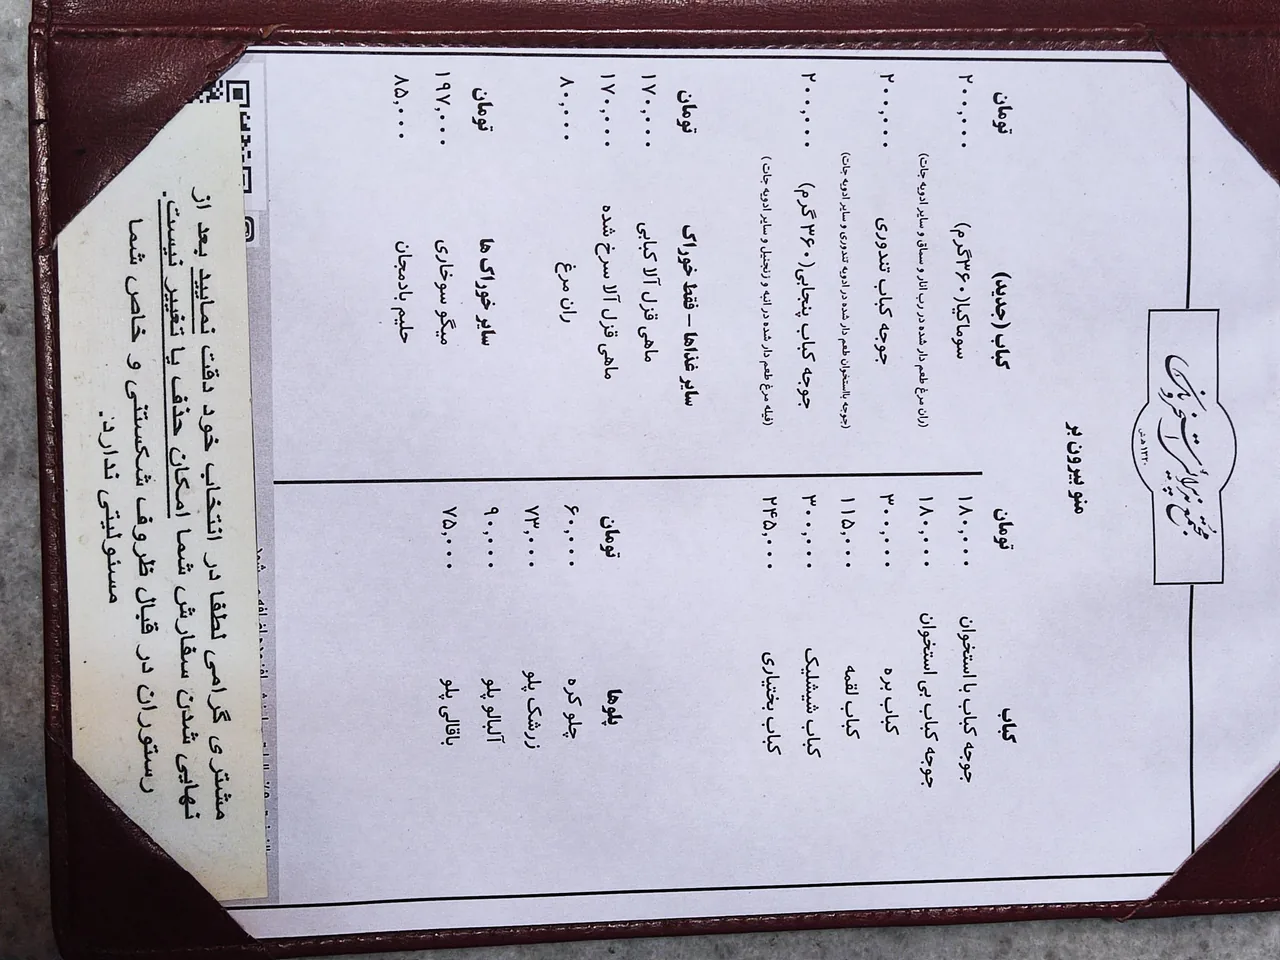 ۱۳۲۰ ه.ش
منو بیرون بر
کباب تومان
جوجه کباب با استخوان ۱۸۰,۰۰۰
جوجه کباب بی استخوان ۱۸۰,۰۰۰
کباب بره ۳۰۰,۰۰۰
کباب لقمه ۱۱۵,۰۰۰
کباب شیشلیک ۳۰۰,۰۰۰
کباب بختیاری ۲۴۵,۰۰۰
پلوها تومان
چلو کره ۶۰,۰۰۰
زرشک پلو ۷۳,۰۰۰
آلبالو پلو ۹۰,۰۰۰
باقالی پلو ۷۵,۰۰۰
کباب (جدید) تومان
سوماکیا(۳۶۰گرم) ۲۰۰,۰۰۰
(ران مرغ طعم دار شده در رب انار و سماق و سایر ادویه جات)
جوجه کباب تندوری ۲۰۰,۰۰۰
(جوجه بااستخوان طعم دار شده در ادویه تندوری و سایر ادویه جات)
جوجه کباب پنجابی(۳۶۰ گرم) ۲۰۰,۰۰۰
(فیله مرغ طعم دار شده در انبه و زنجبیل و سایر ادویه جات)
سایر غذاها – فقط خوراک تومان
ماهی قزل آلا کبابی ۱۷۰,۰۰۰
ماهی قزل آلا سرخ شده ۱۷۰,۰۰۰
ران مرغ ۸۰,۰۰۰
سایر خوراک ها تومان
میگو سوخاری ۱۹۷,۰۰۰
حلیم بادمجان ۸۵,۰۰۰
مشتری گرامی لطفا در انتخاب خود دقت نمایید بعد از
نهایی شدن سفارش شما امکان حذف یا تغییر نیست.
رستوران در قبال ظروف شکستنی و خاص شما
مسئولیتی ندارد.